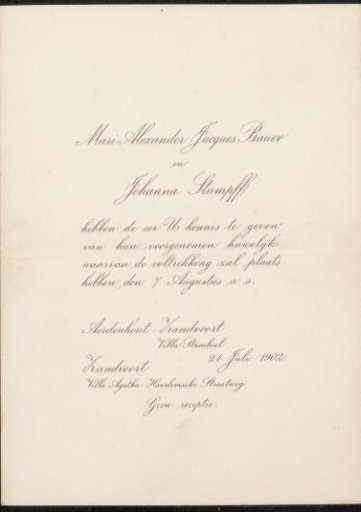 Mari Alexander Jacques Bauer
en
Johanna Stumpff
hebben de eer U kennis te geven
van hun voorgenomen huwelyk
waarvan de voltrekking zal plaats
hebben den 7 Augustus a. s.
Aerdenhout - Zandvoort
Villa Stamboel
24 Juli 1902
Zandvoort
Villa Agatha - Haarlemsche Straatweg
Geen receptie.